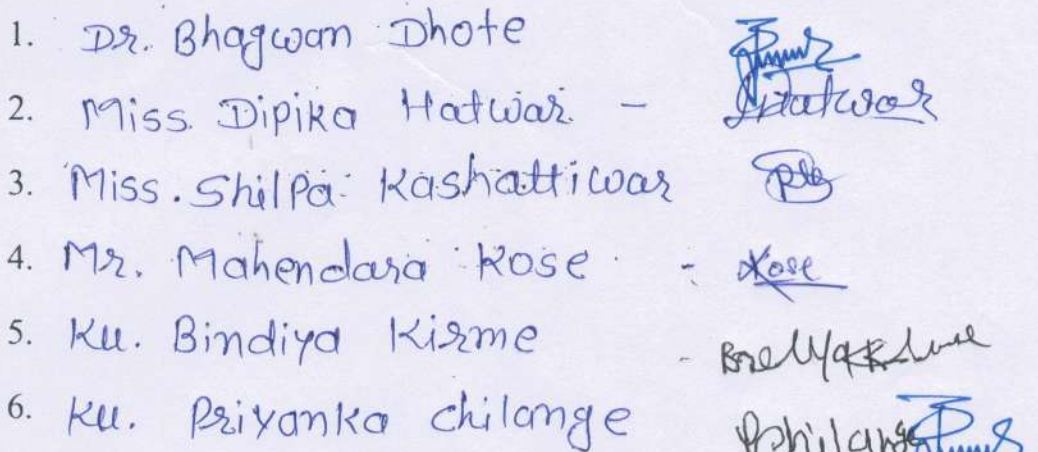 1. Dr. Bhagwan Dhote
2. Miss. Dipika Hatwar - Hatwar
3. Miss. Shilpa Kashattiwar
4. Mr. Mahendara Kose - Kose
5. Ku. Bindiya Kirme -
6. Ku. Priyanka chilange Pchilange